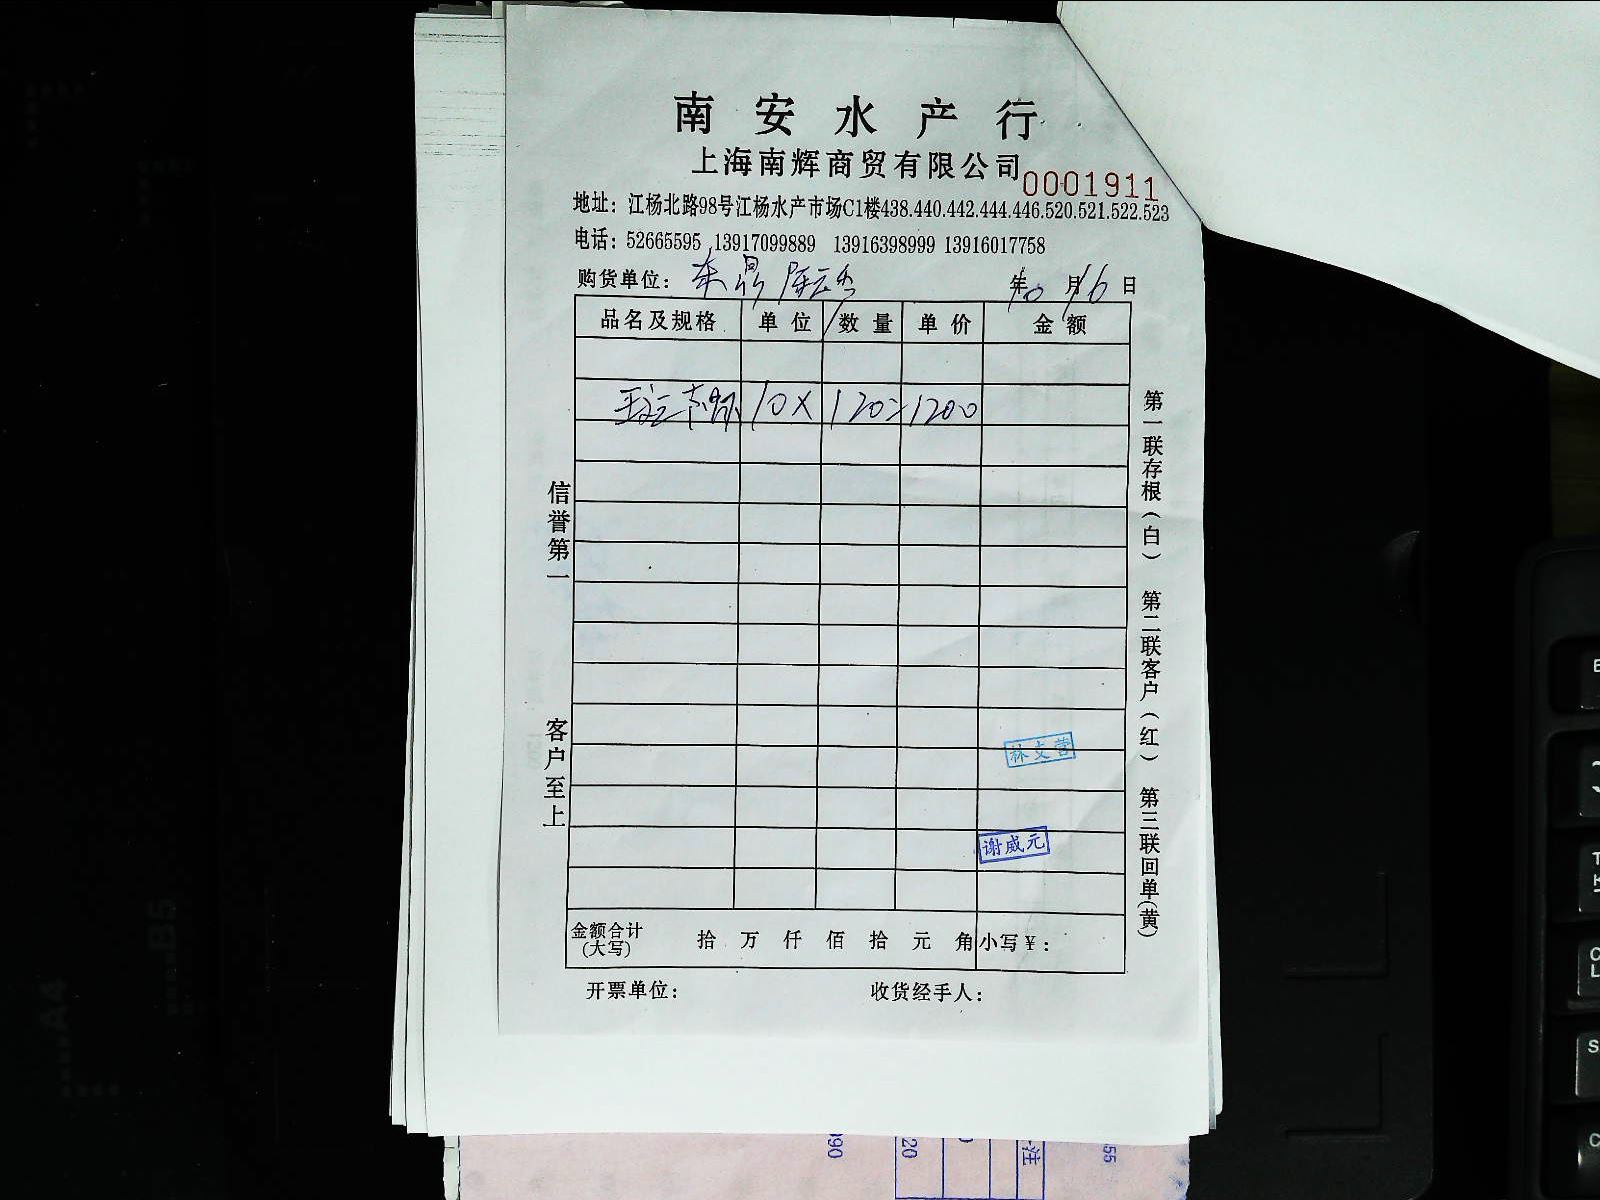 南安水产行
上海南辉商贸有限公司
0001911
地址：江杨北路98号江杨水产市场C1楼438.440.442.444.446.520.521.522.523
电话：52665595 13917099889 13916398999 13916017758
购货单位： 东
年10月16日
品名及规格 单位 数量 单价 金额
10X 120=1200
信誉第一
客户至上
第一联存根（白） 第二联客户（红） 第三联回单（黄）
林文营
谢威元
金额合计（大写） 拾 万 仟 佰 拾 元 角 小写￥：
开票单位： 收货经手人：
B5
A4